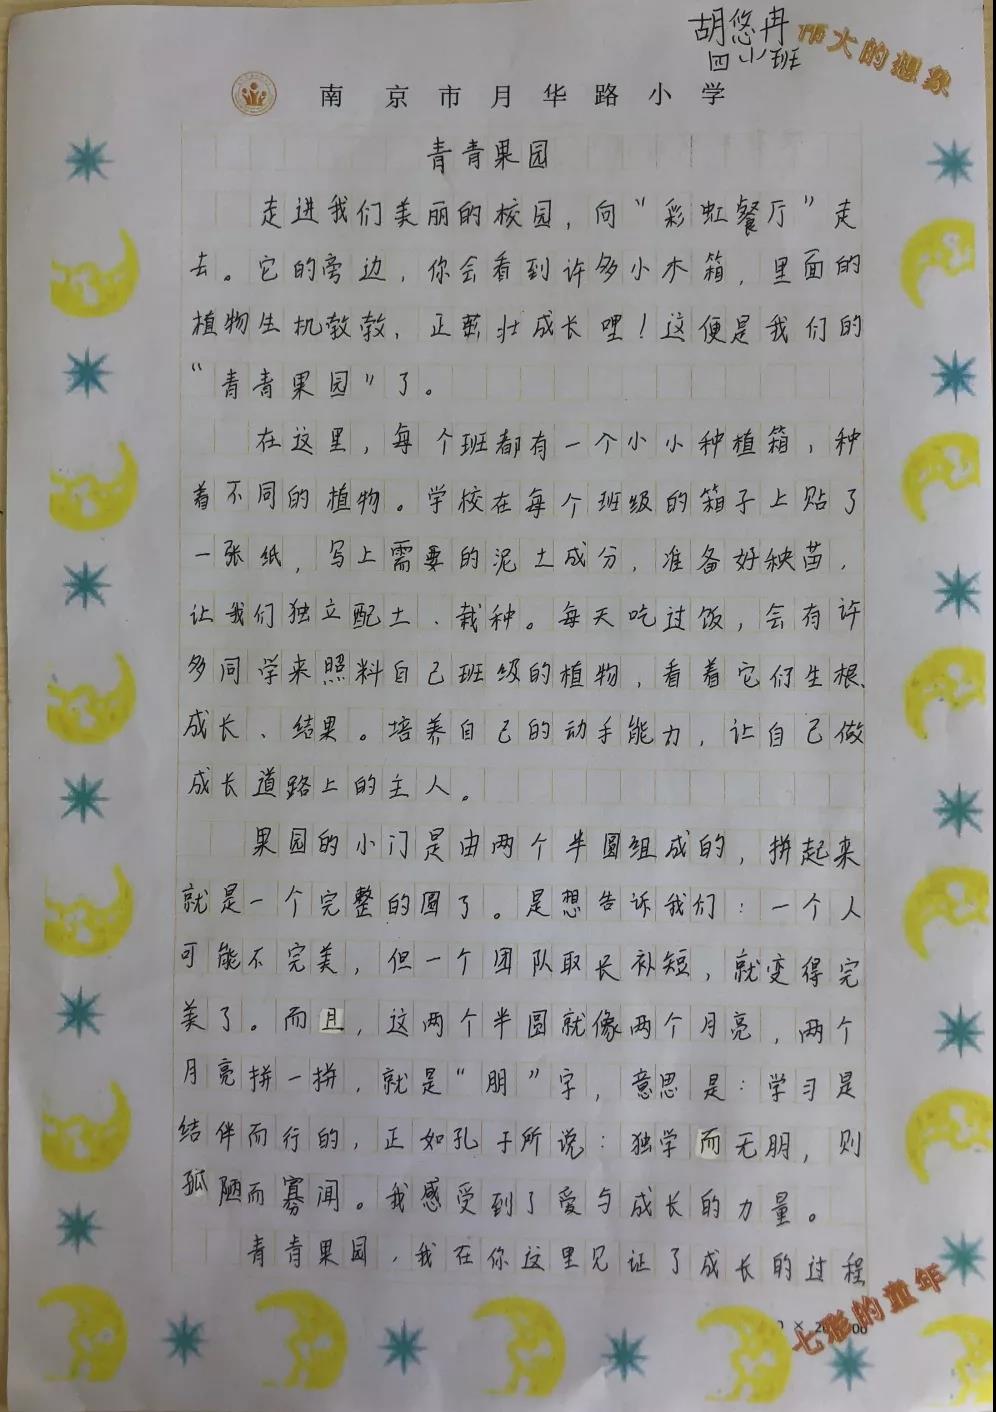 胡悠冉
四小班
伟大的想象
南京市月华路小学
青青果园
走进我们美丽的校园，向“彩虹餐厅”走
去。它的旁边，你会看到许多小木箱，里面的
植物生机敎敎，正茁壮成长哩！这便是我们的
“青青果园”了。
在这里，每个班都有一个小小种植箱，种
着不同的植物。学校在每个班级的箱子上贴了
一张纸，写上需要的泥土成分，准备好秧苗，
让我们独立配土、栽种。每天吃过饭，会有许
多同学来照料自己班级的植物，看着它们生根、
成长、结果。培养自己的动手能力，让自己做
成长道路上的主人。
果园的小门是由两个半圆组成的，拼起来
就是一个完整的圆了。是想告诉我们：一个人
可能不完美，但一个团队取长补短，就变得完
美了。而且，这两个半圆就像两个月亮，两个
月亮拼一拼，就是“朋”字，意思是：学习是
结伴而行的，正如孔子所说：独学而无朋，则
孤陋而寡闻。我感受到了爱与成长的力量。
青青果园，我在你这里见证了成长的过程
七彩的童年